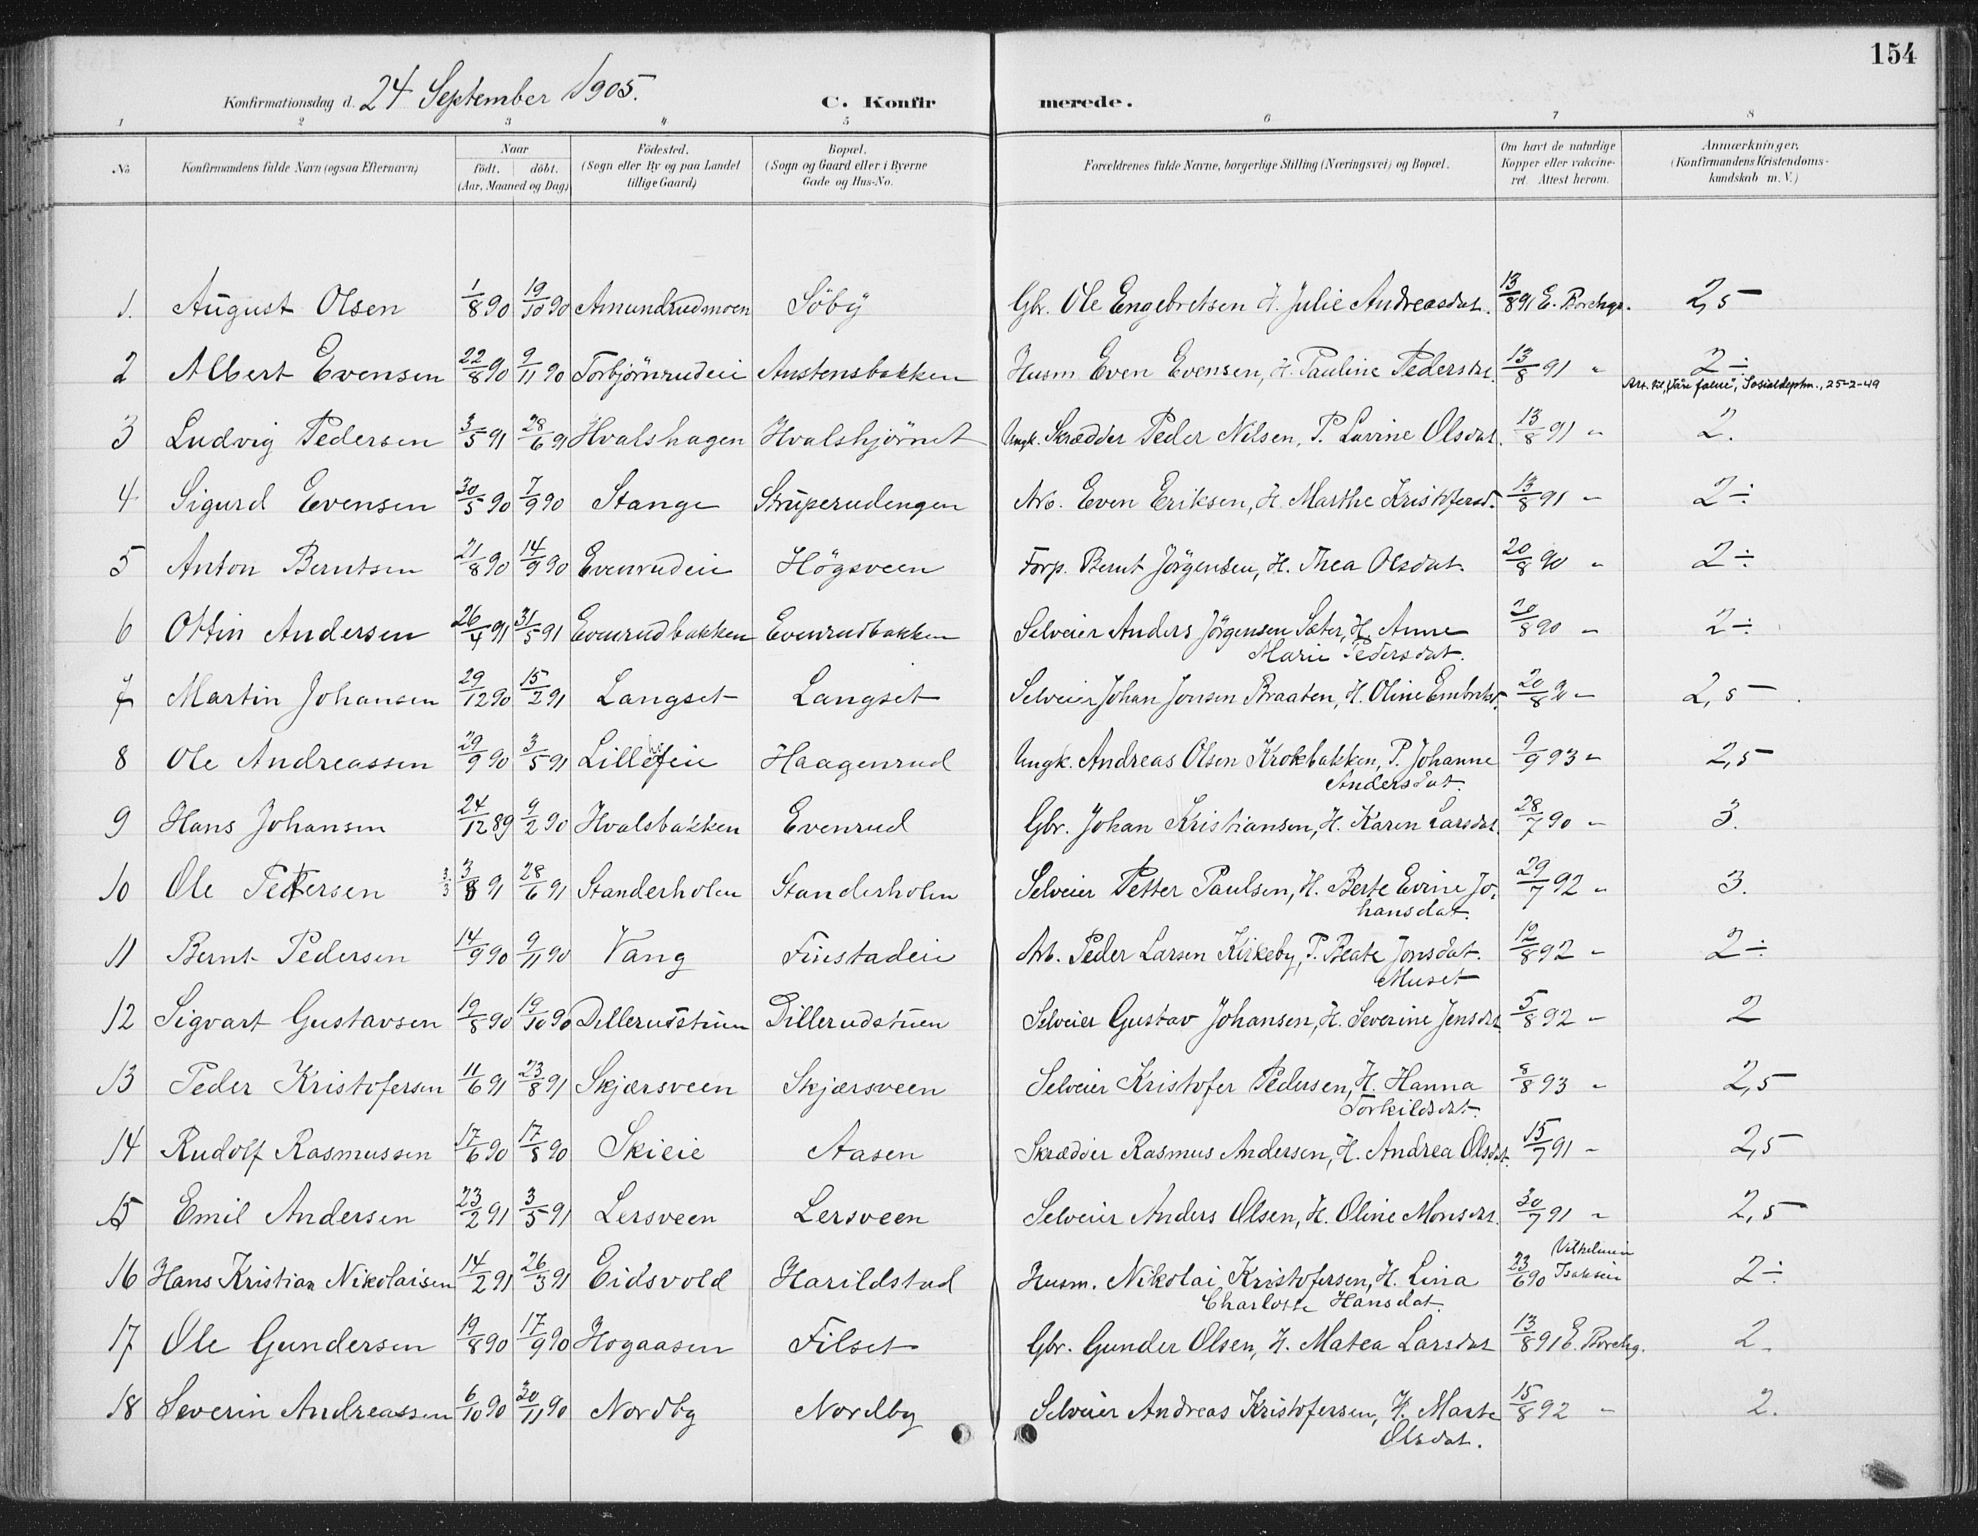 154
Konfirmationsdag d. 24 September 1905. C. Konfir merede.
1 2 3 4 5 6 7 8
No Konfirmandens fulde Navn (ogsaa Efternavn) Naar födt. döbt. (Aar, Maaned og Dag) Födested. (Sogn eller By og paa Landet tillige Gaard) Bopæl. (Sogn og Gaard eller i Byerne Gade og Hus-No. Forældrenes fulde Navne, borgerlige Stilling (Næringsvei) og Bopæl. Om havt de naturlige Kopper eller vakcineret. Attest herom. Anmærkninger. (Konfirmandens Kristendomskundskab m. V.)
1. August Olsen 1/8 90 19/10 90 Amundrudmoen Söby Gbr. Ole Engebretsen H. Julie Andreasdat. 13/8 91 E. Borchgr. 2,5
2 Albert Evensen 22/8 90 9/11 90 Torbjörnrudeie Austensbakken Husm. Even Evensen, H. Pauline Pedersdat. 13/8 91 " 2 ÷
Att. til „Våre falne", Sosialdeptm., 25-2-49
3 Ludvig Pedersen 3/5 91 28/6 91 Hvalshagen Hvalshjörnet Ungk. Skrædder Peder Nilsen, P. Lavine Olsdat. 13/8 91 " 2.
4 Sigurd Evensen 30/5 90 7/9 90 Stange Struperudengen Arb. Even Eriksen, H. Marthe Kristofersd. 13/8 91 " 2 ÷
5 Anton Berntsen 21/8 90 14/9 90 Evenrudeie Högsveen Forp. Bernt Jörgensen, H. Thea Olsdat. 20/8 90 " 2 ÷
6 Ottin Andersen 26/4 91 31/5 91 Evenrudbakken Evenrudbakken Selveier Anders Jörgensen Sæter, H. Anne 20/8 90 " 2 ÷
Marie Pedersdat.
7 Martin Johansen 29/12 90 15/2 91 Langset Langset Selveier Johan Jonsen Braaten, H. Oline Embretsd. 20/8 90 " 2,5
8 Ole Andreassen 29/9 90 3/5 91 Haagenrud Ungk. Andreas Olsen Krokbakken, P. Johanne 9/9 93 " 2,5
Andersdat.
9 Hans Johansen 24/12 89 9/2 90 Hvalsbakken Evenrud Gbr. Johan Kristiansen, H. Karen Larsdat. 28/7 90 " 3.
10 Ole Pettersen 3/3 3/8 91 28/6 91 Standerholen Standerholen Selveier Petter Paulsen, H. Berte Evine Jo- 29/7 92 " 3.
hansdat.
11 Bernt Pedersen 14/9 90 9/11 90 Vang Finstadeie Arb. Peder Larsen Kirkeby, P. Beate Jonsdat. 12/8 92 " 2 ÷
Muset
12 Sigvart Gustavsen 19/8 90 19/10 90 Dillerudstuen Dillerudstuen Selveier Gustav Johansen, H. Severine Jensdat. 5/8 92 " 2
13 Peder Kristofersen 11/6 91 23/8 91 Skjærsveen Skjærsveen Selveier Kristofer Pedersen, H. Hanna 8/8 93 " 2,5
Torkildsdat.
14 Rudolf Rasmussen 17/6 90 17/8 90 Skieie Aasen Skrædder Rasmus Andersen, H. Andrea Olsdat. 15/7 91 " 2,5
15 Emil Andersen 23/2 91 3/5 91 Lersveen Lersveen Selveier Anders Olsen, H. Oline Monsdat. 30/7 91 " 2,5
16 Hans Kristian Nikolaisen 14/2 91 26/3 91 Eidsvold Harildstad Husm. Nikolai Kristofersen, H. Lina 23/6 90 Vilhelmin Isaksen 2 ÷
Charlotte Hansdat.
17 Ole Gundersen 19/8 90 17/9 90 Hogaasen Filset Gbr. Gunder Olsen, H. Matea Larsdat 13/8 91 E. Borchg. 2.
18 Severin Andreassen 6/10 90 30/11 90 Nordby Nordby Selveier Andreas Kristofersen, H. Marte 15/8 92 " 2.
Olsdat.